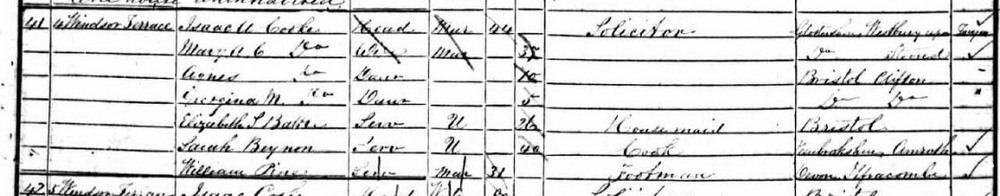 One house uninhabited
41 4 Windsor Terrace Isaac A Cooke Head Mar 44 Solicitor Glostershire Westbury upon
Mary A C Do Wife Mar 35 Do Stroud
Agnes Do Daur 10 Bristol Clifton
Georgina M. Do Daur 5 Do Do
Elizabeth S Baker Serv U 26 House maid Bristol
Sarah Beynon Serv U 40 Cook Pembrokshire Amroth
William Pine Serv Mar 31 Footman Devon Ilfracombe
42 5 Windsor Terrace Isaac Cooke